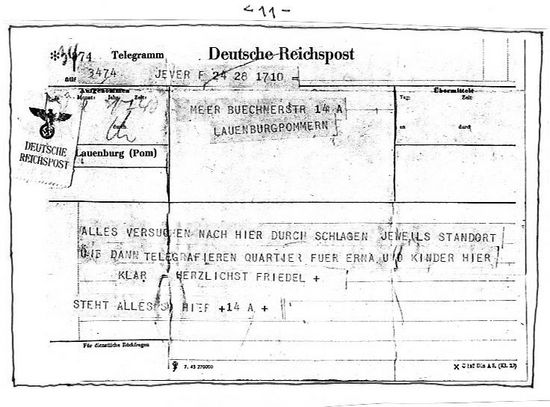 - 11 -
Telegramm
Deutsche Reichspost
aus 3474 JEVER F 24 26 1710
Aufgenommen
Übermittelt
Monat: Jahr: Zeit:
Tag: Zeit:
MEIER BUECHNERSTR 14 A
LAUENBURGPOMMERN
durch
an durch
DEUTSCHE
REICHSPOST
Lauenburg (Pom)
ALLES VERSUCHEN NACH HIER DURCH SCHLAGEN JEWEILS STANDORT
DANN TELEGRAFIEREN QUARTIER FUER ERNA UND KINDER HIER
KLAR HERZLICHST FRIEDEL +
STEHT ALLES HIER +14 A +
Für dienstliche Rückfragen